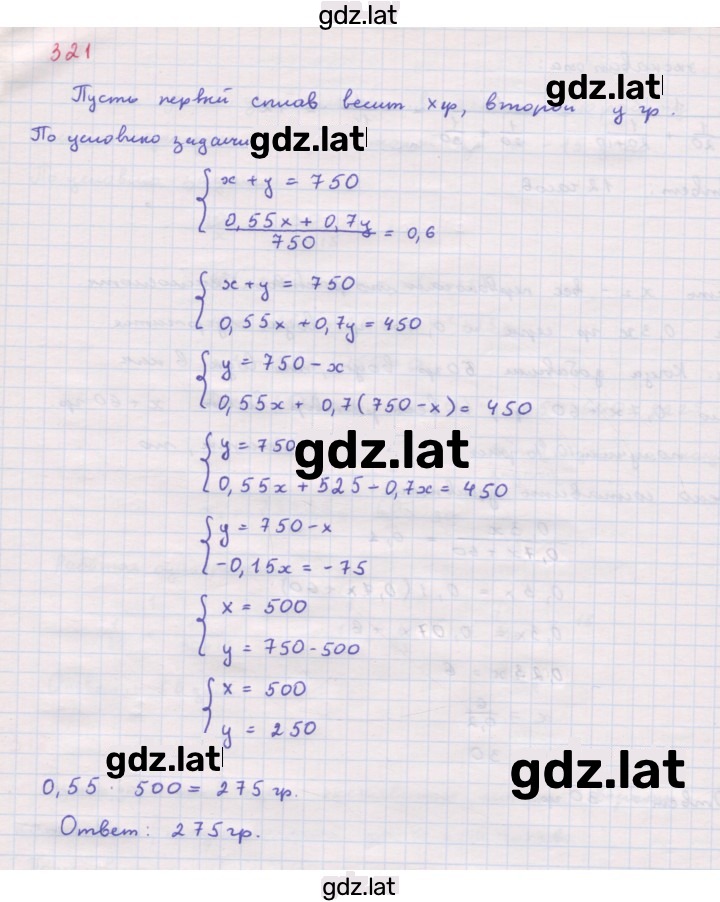 gdz.lat
321
Пусть первый сплав весит x гр, второй y гр.
gdz.lat
По условию задачи
gdz.lat
x + y = 750
(0,55x + 0,7y)/750 = 0,6
x + y = 750
0,55x + 0,7y = 450
y = 750 - x
0,55x + 0,7(750 - x) = 450
y = 750
gdz.lat
0,55x + 525 - 0,7x = 450
y = 750 - x
-0,15x = -75
x = 500
y = 750 - 500
x = 500
y = 250
gdz.lat
gdz.lat
0,55 · 500 = 275 гр.
Ответ: 275 гр.
gdz.lat